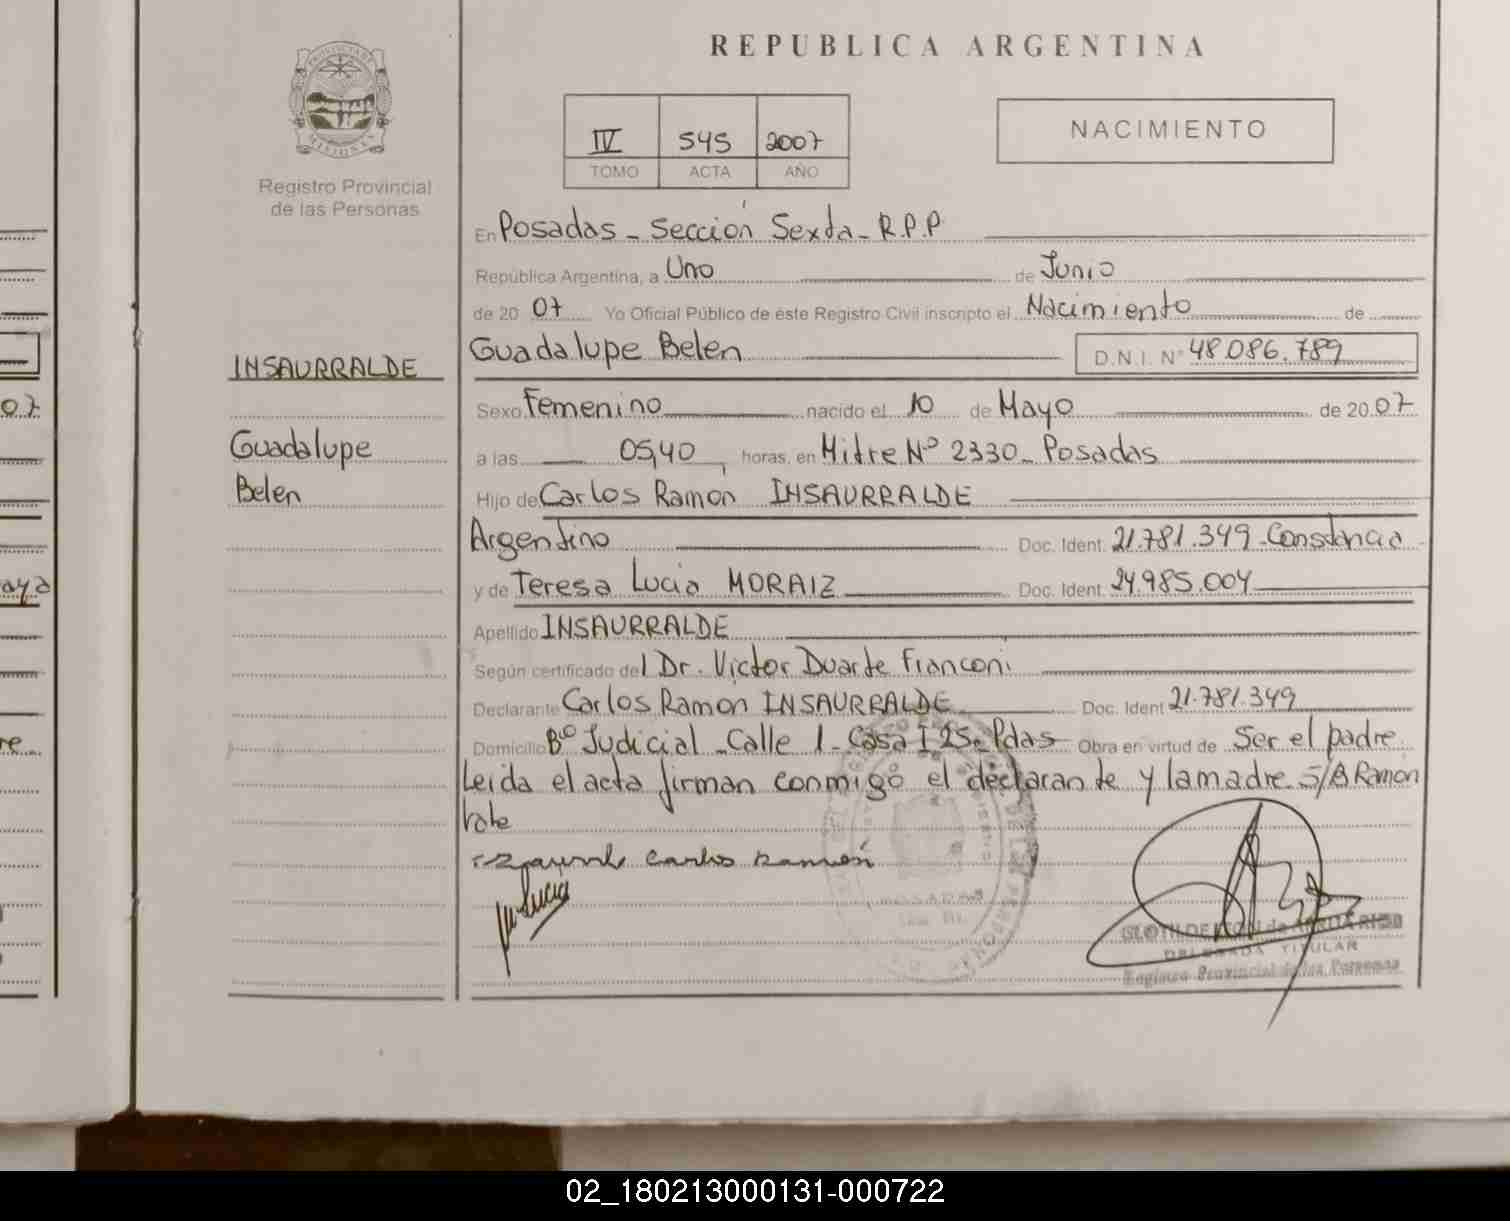 REPUBLICA ARGENTINA
PROVINCIA DE MISIONES
Registro Provincial
de las Personas
IV 545 2007
TOMO ACTA AÑO
NACIMIENTO
En Posadas - Sección Sexta - R.P.P
República Argentina, a Uno de Junio
de 20 07 Yo Oficial Público de éste Registro Civil inscripto el Nacimiento de
Guadalupe Belén D.N.I. Nº 48.086.789
INSAURRALDE
Guadalupe
Belén
Sexo Femenino nacido el 10 de Mayo de 20 07
a las 05,40 horas, en Mitre Nº 2330 - Posadas
Hijo de Carlos Ramón INSAURRALDE
Argentino Doc. Ident. 21.781.349 - Constancia
y de Teresa Lucia MORAIZ Doc. Ident. 24.985.004
Apellido INSAURRALDE
Según certificado del Dr. Victor Duarte Franconi
Declarante Carlos Ramón INSAURRALDE Doc. Ident 21.781.349
Domicilio Bº Judicial - Calle 1 - Casa I 25 - Pdas Obra en virtud de Ser el padre
Leida el acta firman conmigo el declarante y la madre S/B Ramón
Vale
Carlos Ramón
Lucia
POSADAS
DELEGADA TITULAR
Registro Provincial de las Personas
07
re
02_180213000131-000722